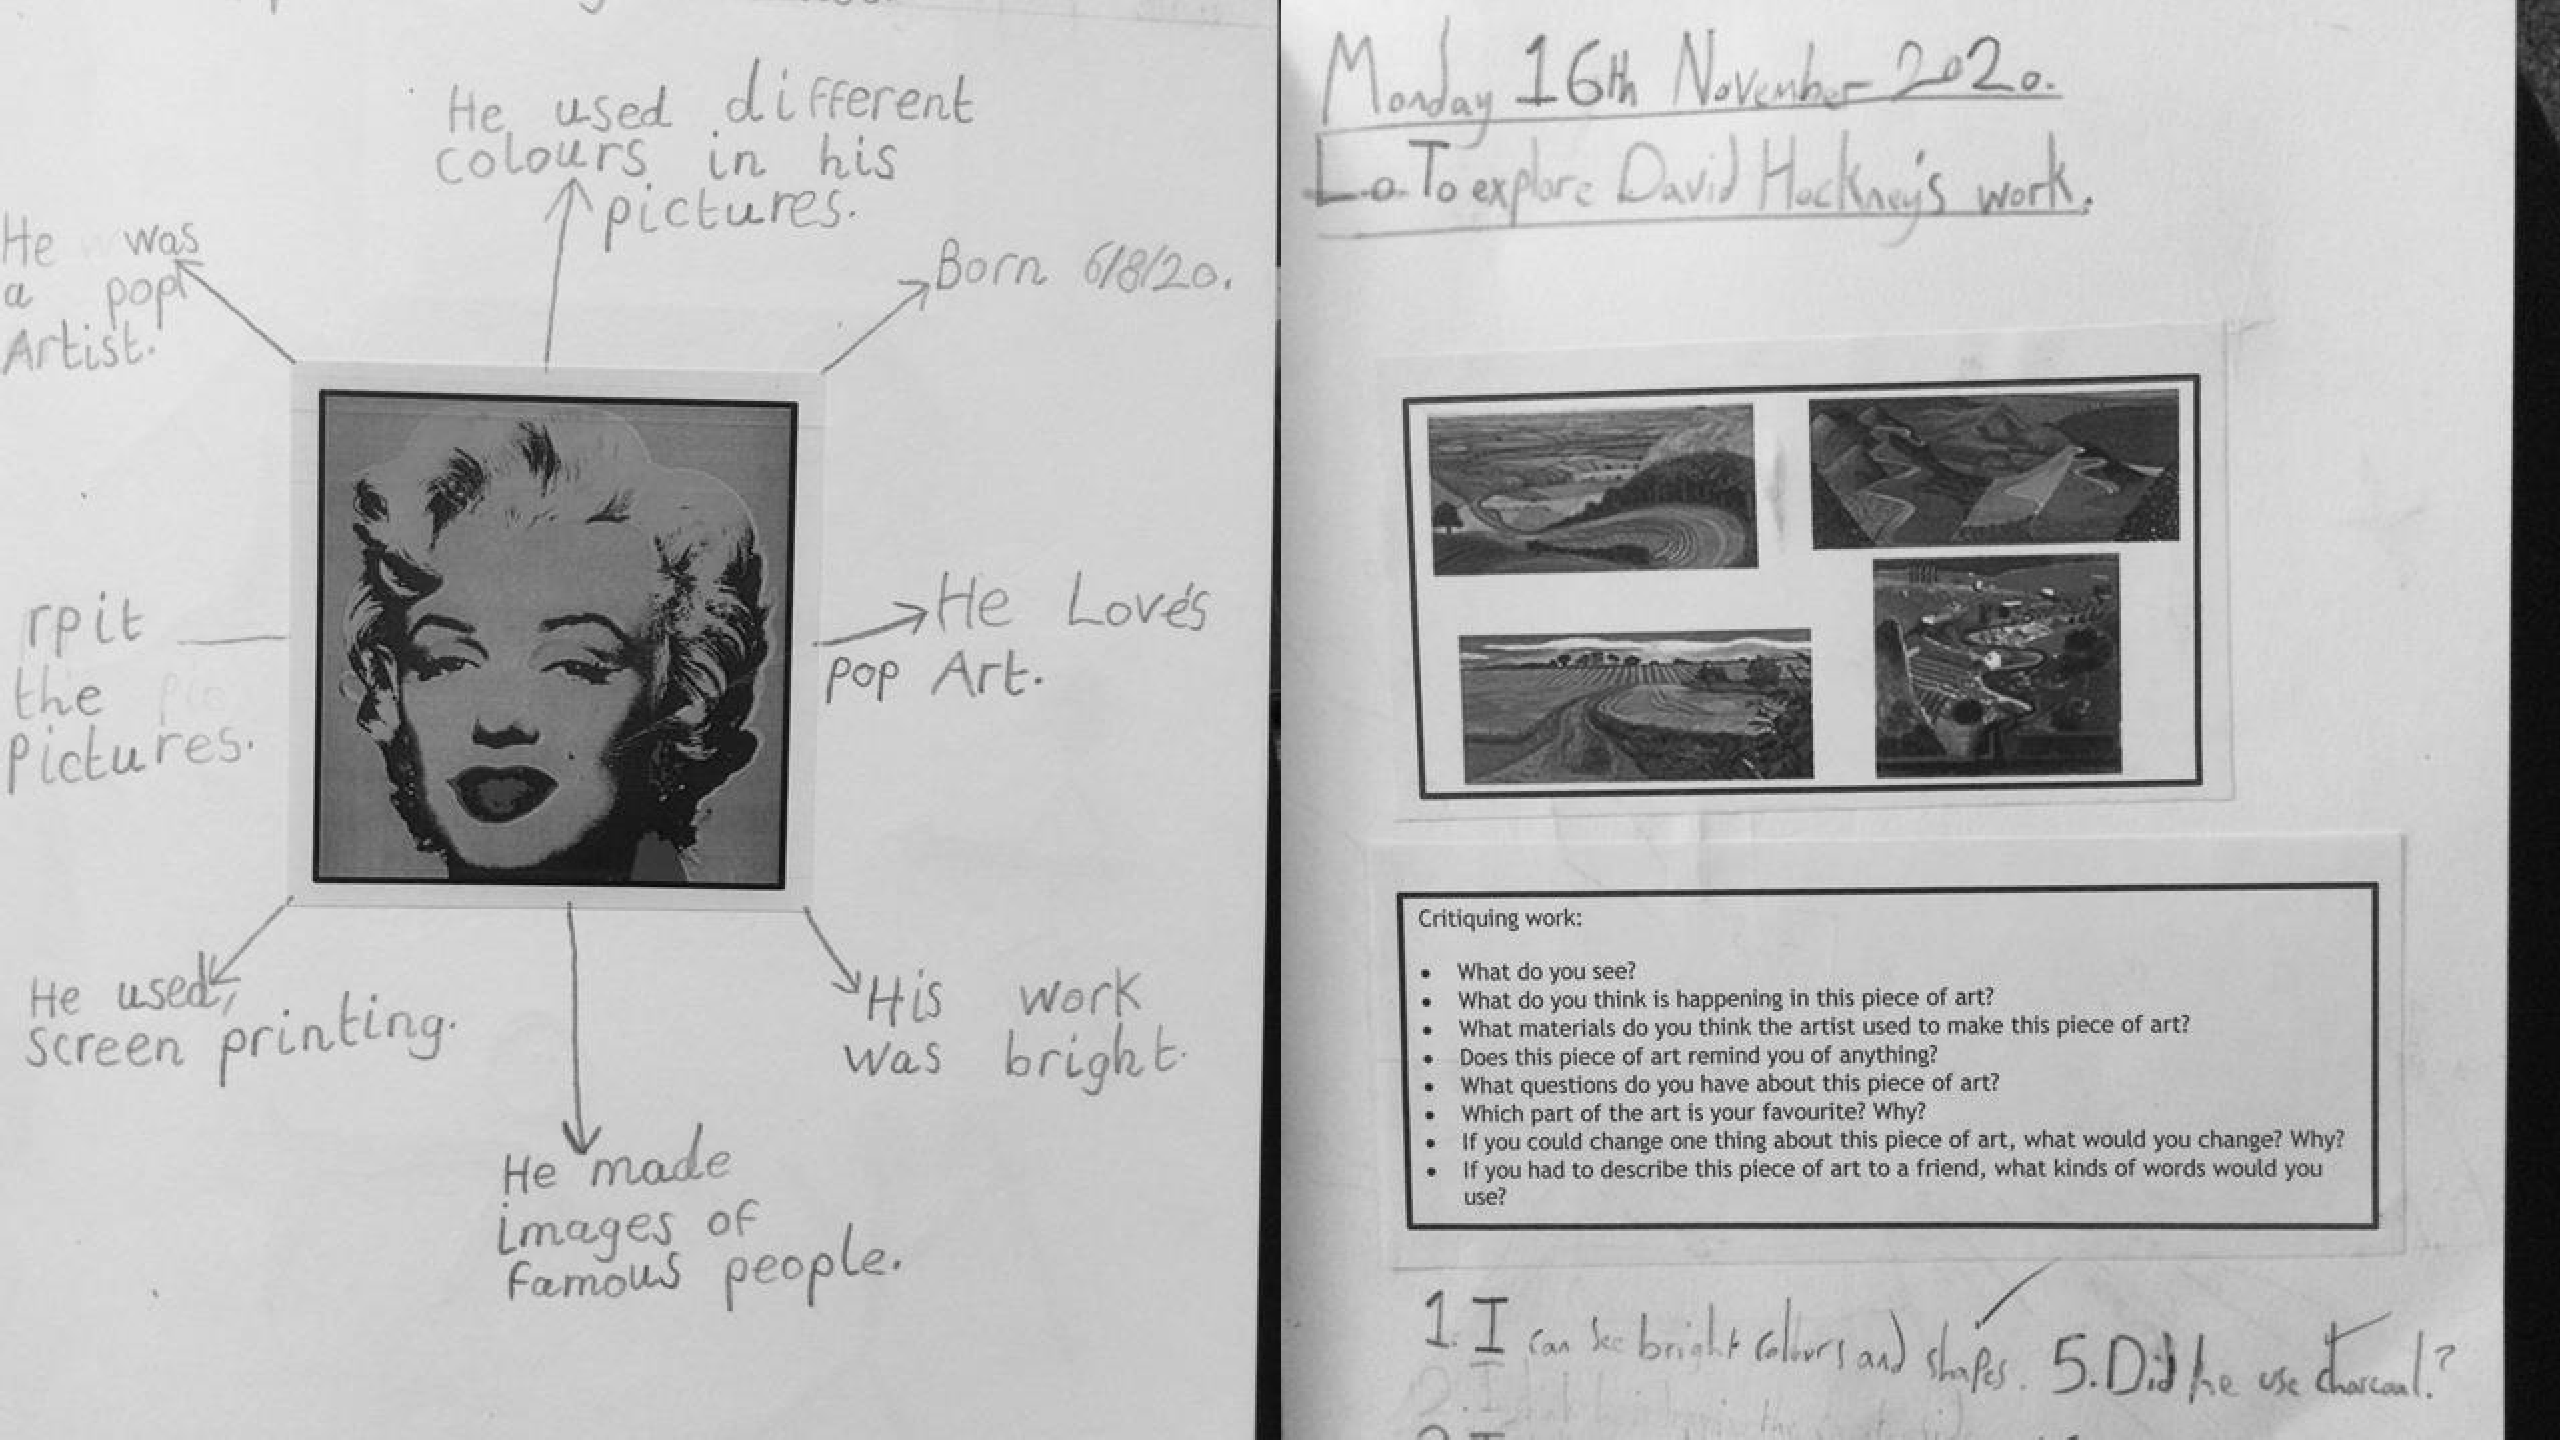 He used different
colours in his
pictures.
He was
a pop
Artist.
Born 6/8/20.
rpit
the
Pictures.
He Loves
pop Art.
He used
screen printing.
His work
was bright.
He made
images of
famous people.
Monday 16th November 2020.
Lo To explore David Hockney's work.
Critiquing work:
• What do you see?
• What do you think is happening in this piece of art?
• What materials do you think the artist used to make this piece of art?
• Does this piece of art remind you of anything?
• What questions do you have about this piece of art?
• Which part of the art is your favourite? Why?
• If you could change one thing about this piece of art, what would you change? Why?
• If you had to describe this piece of art to a friend, what kinds of words would you
use?
1. I can see bright colours and shapes. 5. Did he use charcoal?
2. I